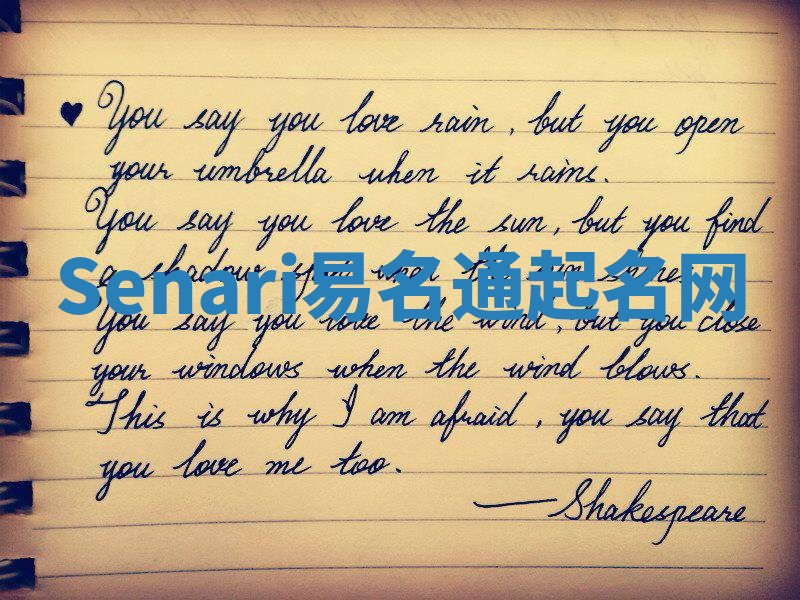 ♥ You say you love rain, but you open
your umbrella when it rains.
You say you love the sun, but you find
a shadow spot when the sun shines.
Senari易名通起名网
You say you love the wind, but you close
your windows when the wind blows.
This is why I am afraid, you say that
you love me too.
—Shakespeare